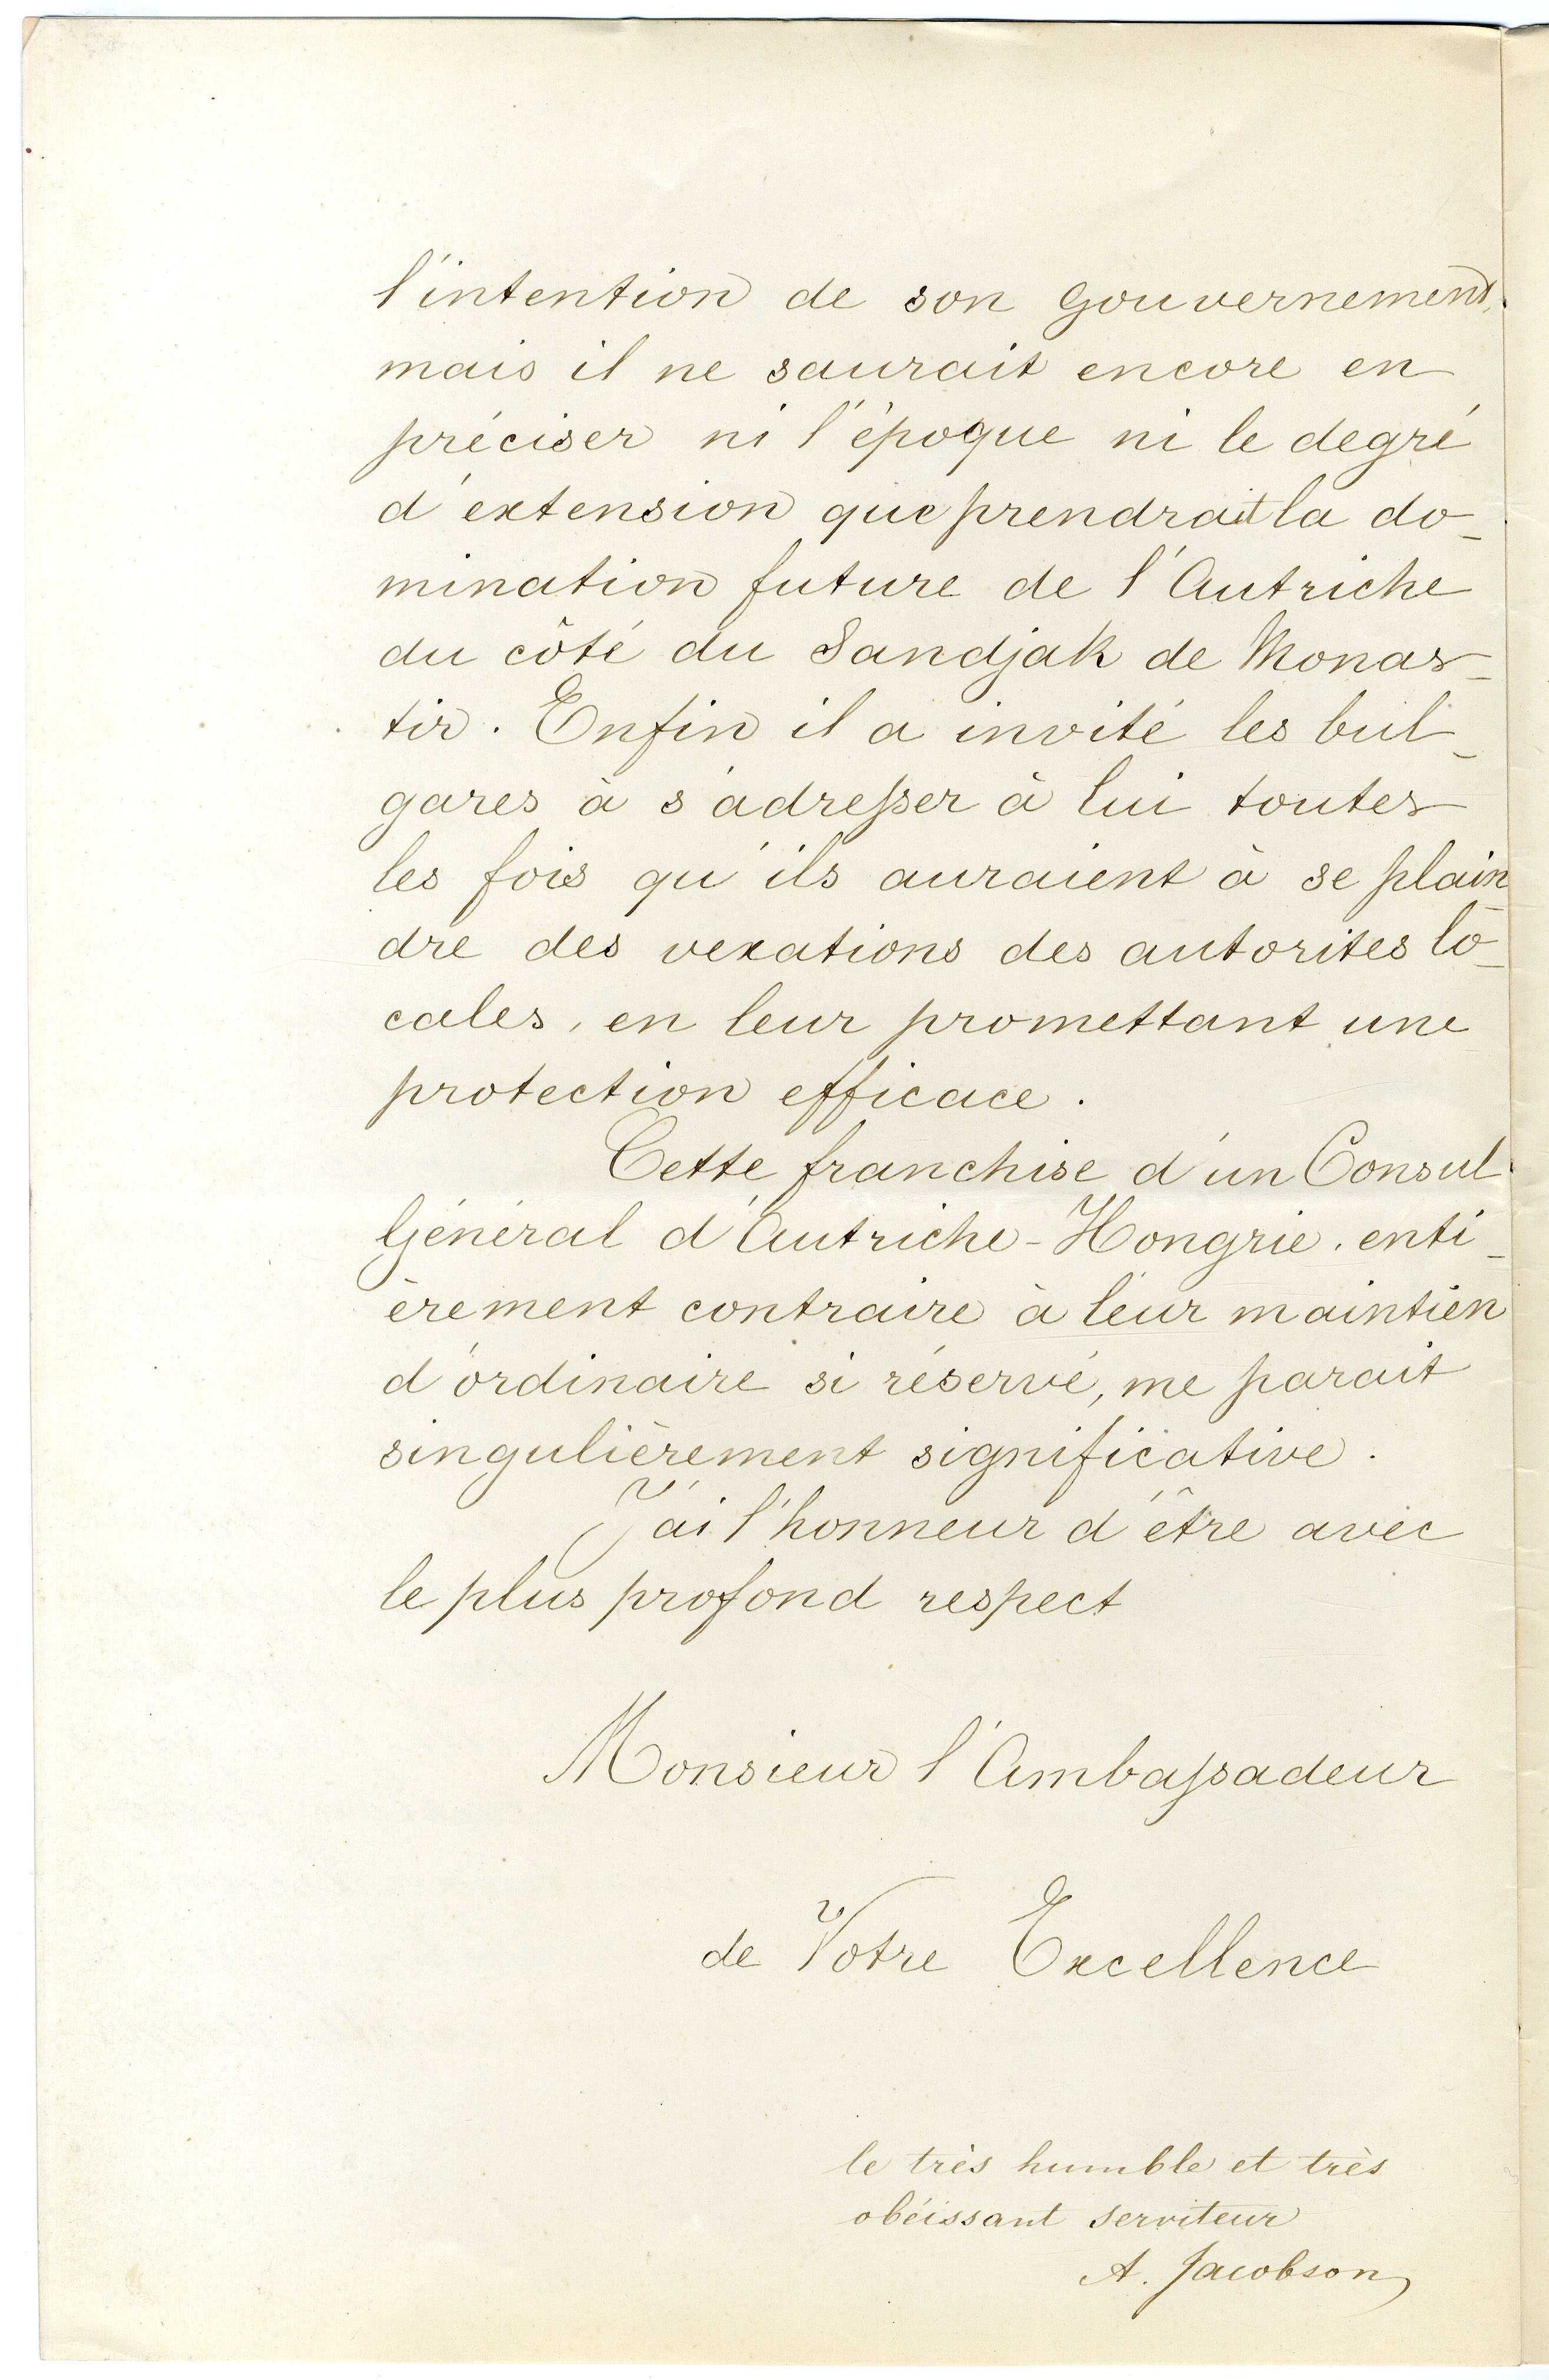 l'intention de son Gouvernement,
mais il ne saurait encore en
préciser ni l'époque ni le degré
d'extension que prendrait la do-
mination future de l'Autriche
du côté du Sandjak de Monas-
tir. Enfin il a invité les bul-
gares à s'adresser à lui toutes
les fois qu'ils auraient à se plain-
dre des vexations des autorites lo-
cales, en leur promettant une
protection efficace.
Cette franchise d'un Consul
Général d'Autriche-Hongrie, enti-
èrement contraire à leur maintien
d'ordinaire si réservé, me parait
singulièrement significative.
J'ai l'honneur d'être avec
le plus profond respect
Monsieur l'Ambassadeur
de Votre Excellence
le très humble et très
obéissant serviteur
A. Jacobson